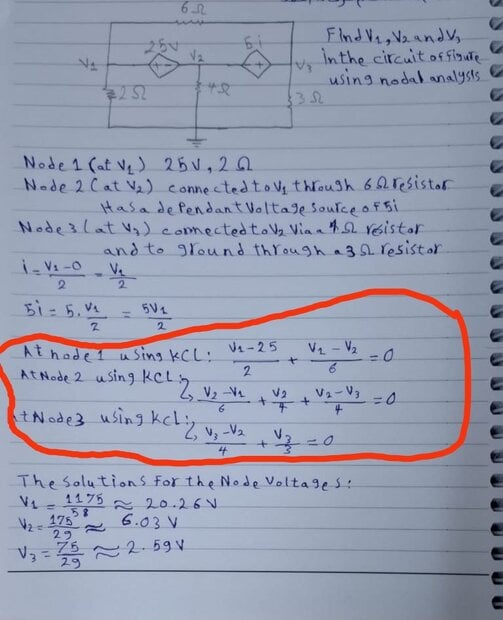 6Ω
Find V₁, V₂ and V₃
25V
V₂
5i
V₁
+ -
+
V₃
in the circuit of figure
using nodal analysis
2Ω
4Ω
3Ω
Node 1 (at V₁) 25V, 2Ω
Node 2 (at V₂) connected to V₁ through 6Ω resistor
Has a dependant Voltage source of 5i
Node 3 (at V₃) connected to V₂ Via a 4Ω resistor
and to ground through a 3Ω resistor
i = V₁-0/2 = V₁/2
5i = 5. V₁/2 = 5V₁/2
At node 1 using KCL: V₁-25/2 + V₁-V₂/6 = 0
At Node 2 using KCL:
V₂-V₁/6 + V₂/4 + V₂-V₃/4 = 0
At Node 3 using kcl:
V₃-V₂/4 + V₃/3 = 0
The solutions for the Node Voltages:
V₁ = 1175/58 ≈ 20.26V
V₂ = 175/29 ≈ 6.03 V
V₃ = 75/29 ≈ 2.59V